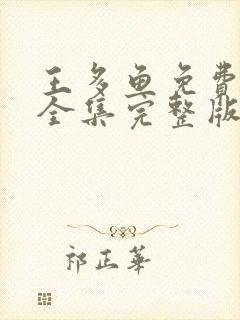 王多鱼免费
全集完整版
祁正华